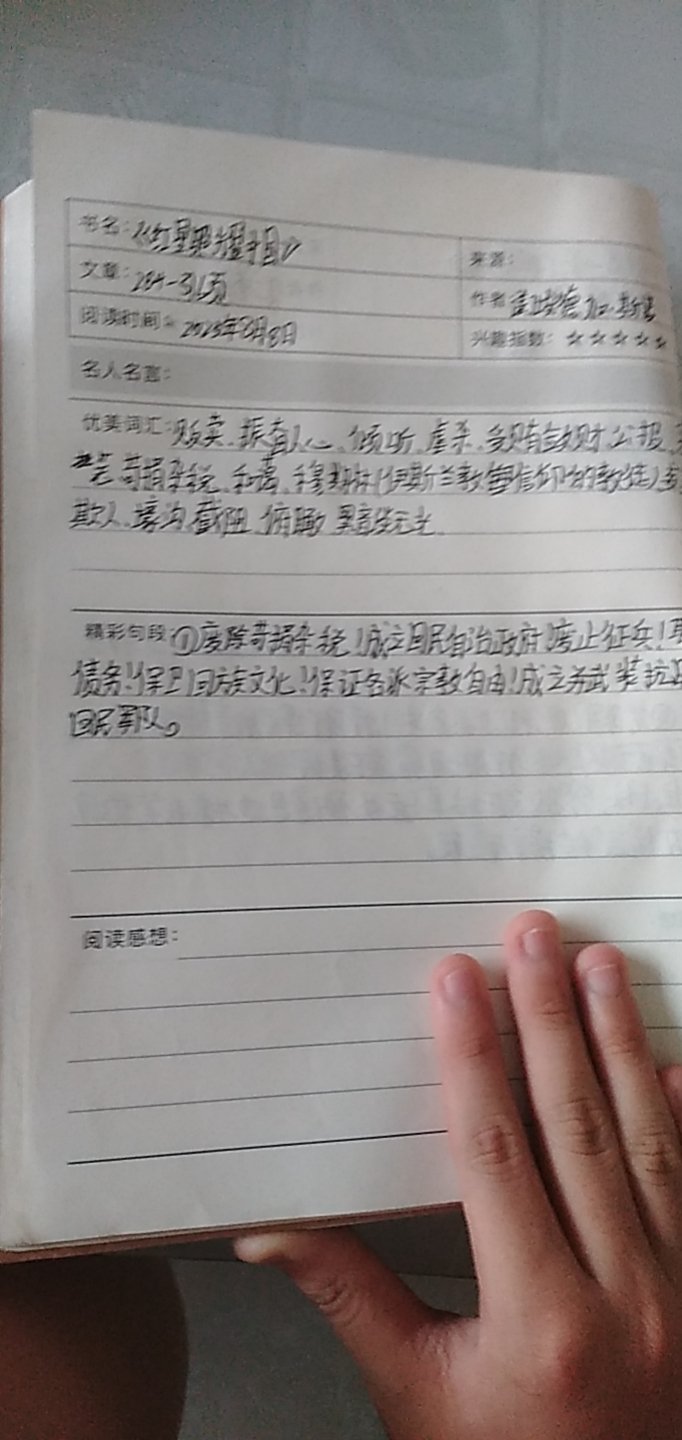 书名：《红星照耀中国》
来源：
文章：284-313页
作者 埃德加·斯诺
阅读时间： 2023年8月8日
兴趣指数：☆☆☆☆☆
名人名言：
优美词汇：贩卖、振奋人心、倾听、虐杀、受贿敛财、公报、
苛捐杂税、和蔼、穆斯林(伊斯兰教信仰的教徒)、
欺人、壕沟、截阻、俯瞰、黑暗无光
精彩句段：①废除苛捐杂税！成立回民自治政府！废止征兵！取
债务！保卫回族文化！保证各派宗教自由！成立武装抗
回民军队。
阅读感想：